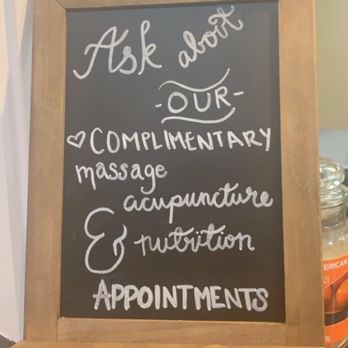 Ask about
-OUR-
♡ COMPLIMENTARY
massage
acupuncture
& nutrition
APPOINTMENTS
ERICAN